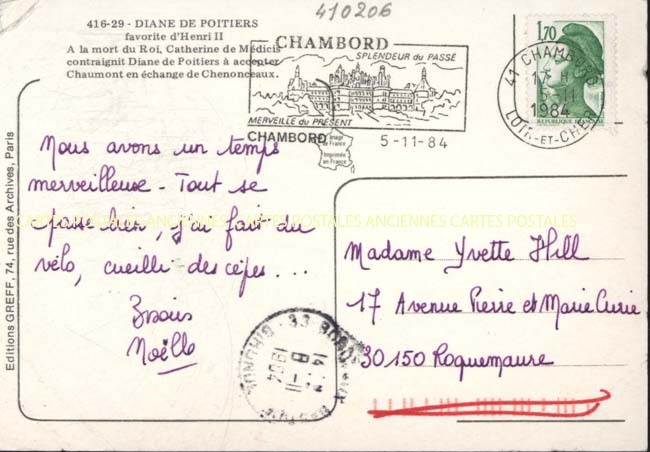 410206
416-29 - DIANE DE POITIERS
favorite d'Henri II
A la mort du Roi, Catherine de Médicis
contraignit Diane de Poitiers à accepter
Chaumont en échange de Chenonceaux.
CHAMBORD
SPLENDEUR du PASSÉ
MERVEILLE du PRÉSENT
CHAMBORD
5-11-84
Image
de France
Imprimée
en France
1,70
RÉPUBLIQUE FRANÇAISE
41 CHAMBORD
17 H
5-11
1984
LOIR-ET-CHER
Editions GREFF, 74, rue des Archives, Paris
Nous avons un temps
merveilleuse - Tout se
passe bien, j'ai fait du
vélo, cueilli des cèpes...
Bisous
Noëlle
CARTES POSTALES ANCIENNES CARTES POSTALES ANCIENNES CARTES POSTALES
Madame Yvette Hill
17 Avenue Pierre et Marie Curie
30150 Roquemaure
33 BORDEAUX
14 H
8-11
1984
GIRONDE